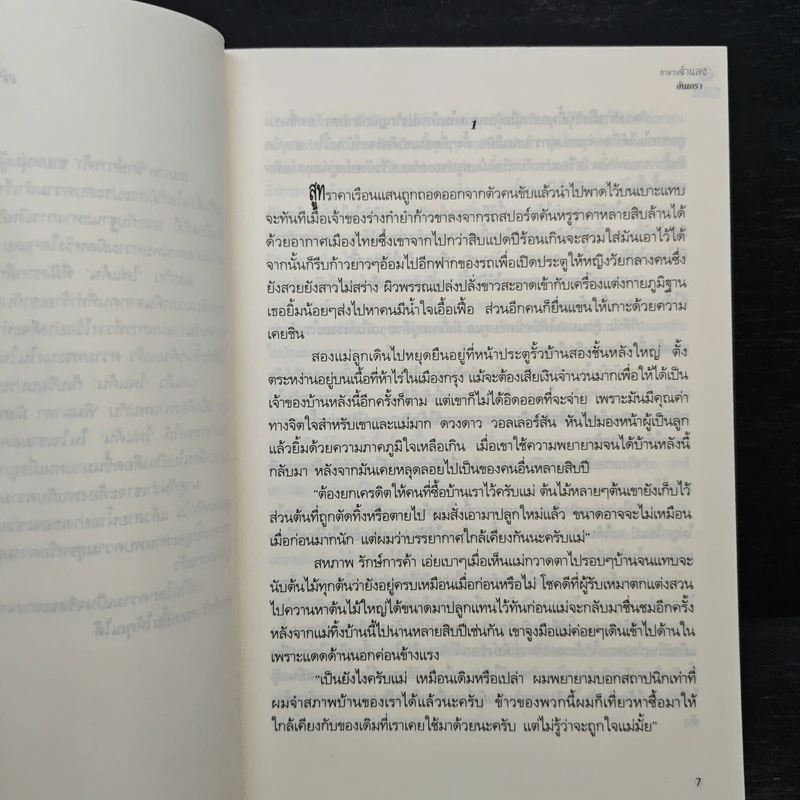 ซาตานจำแลง
กันเกรา
1
สูทราคาเรือนแสนถูกถอดออกจากตัวคนขับแล้วนำไปพาดไว้บนเบาะแทบ
จะทันทีเมื่อเจ้าของร่างกำยำก้าวขาลงจากรถสปอร์ตคันหรูราคาหลายสิบล้านได้
ด้วยอากาศเมืองไทยซึ่งเขาจากไปกว่าสิบแปดปีร้อนเกินจะสวมใส่มันเอาไว้ได้
จากนั้นก็รีบก้าวยาวๆอ้อมไปอีกฟากของรถเพื่อเปิดประตูให้หญิงวัยกลางคนซึ่ง
ยังสวยยังสาวไม่สร่าง ผิวพรรณเปล่งปลั่งขาวสะอาดเข้ากับเครื่องแต่งกายภูมิฐาน
เธอยิ้มน้อยๆส่งไปหาคนมีน้ำใจเอื้อเฟื้อ ส่วนอีกคนก็ยื่นแขนให้เกาะด้วยความ
เคยชิน
สองแม่ลูกเดินไปหยุดยืนอยู่ที่หน้าประตูรั้วบ้านสองชั้นหลังใหญ่ ตั้ง
ตระหง่านอยู่บนเนื้อที่ห้าไร่ในเมืองกรุง แม้จะต้องเสียเงินจำนวนมากเพื่อให้ได้เป็น
เจ้าของบ้านหลังนี้อีกครั้งก็ตาม แต่เขาก็ไม่ได้อิดออดที่จะจ่าย เพราะมันมีคุณค่า
ทางจิตใจสำหรับเขาและแม่มาก ดวงดาว วอลเลอร์สัน หันไปมองหน้าผู้เป็นลูก
แล้วยิ้มด้วยความภาคภูมิใจเหลือเกิน เมื่อเขาใช้ความพยายามจนได้บ้านหลังนี้
กลับมา หลังจากมันเคยหลุดลอยไปเป็นของคนอื่นหลายสิบปี
“ต้องยกเครดิตให้คนที่ซื้อบ้านเราไว้ครับแม่ ต้นไม้หลายๆต้นเขายังเก็บไว้
ส่วนต้นที่ถูกตัดทิ้งหรือตายไป ผมสั่งเอามาปลูกใหม่แล้ว ขนาดอาจจะไม่เหมือน
เมื่อก่อนมากนัก แต่ผมว่าบรรยากาศใกล้เคียงกันนะครับแม่”
สหภาพ รักษ์การค้า เอ่ยเบาๆเมื่อเห็นแม่กวาดตาไปรอบๆบ้านจนแทบจะ
นับต้นไม้ทุกต้นว่ายังอยู่ครบเหมือนเมื่อก่อนหรือไม่ โชคดีที่ผู้รับเหมาตกแต่งสวน
ไปควานหาต้นไม้ใหญ่ได้ขนาดมาปลูกแทนไว้ทันก่อนแม่จะกลับมาชื่นชมอีกครั้ง
หลังจากแม่ทิ้งบ้านนี้ไปนานหลายสิบปีเช่นกัน เขาจูงมือแม่ค่อยๆเดินเข้าไปด้านใน
เพราะแดดด้านนอกค่อนข้างแรง
“เป็นยังไงครับแม่ เหมือนเดิมหรือเปล่า ผมพยายามบอกสถาปนิกเท่าที่
ผมจำสภาพบ้านของเราได้แล้วนะครับ ข้าวของพวกนี้ผมก็เที่ยวหาซื้อมาให้
ใกล้เคียงกับของเดิมที่เราเคยใช้มาด้วยนะครับ แต่ไม่รู้ว่าจะถูกใจแม่มั้ย”
7